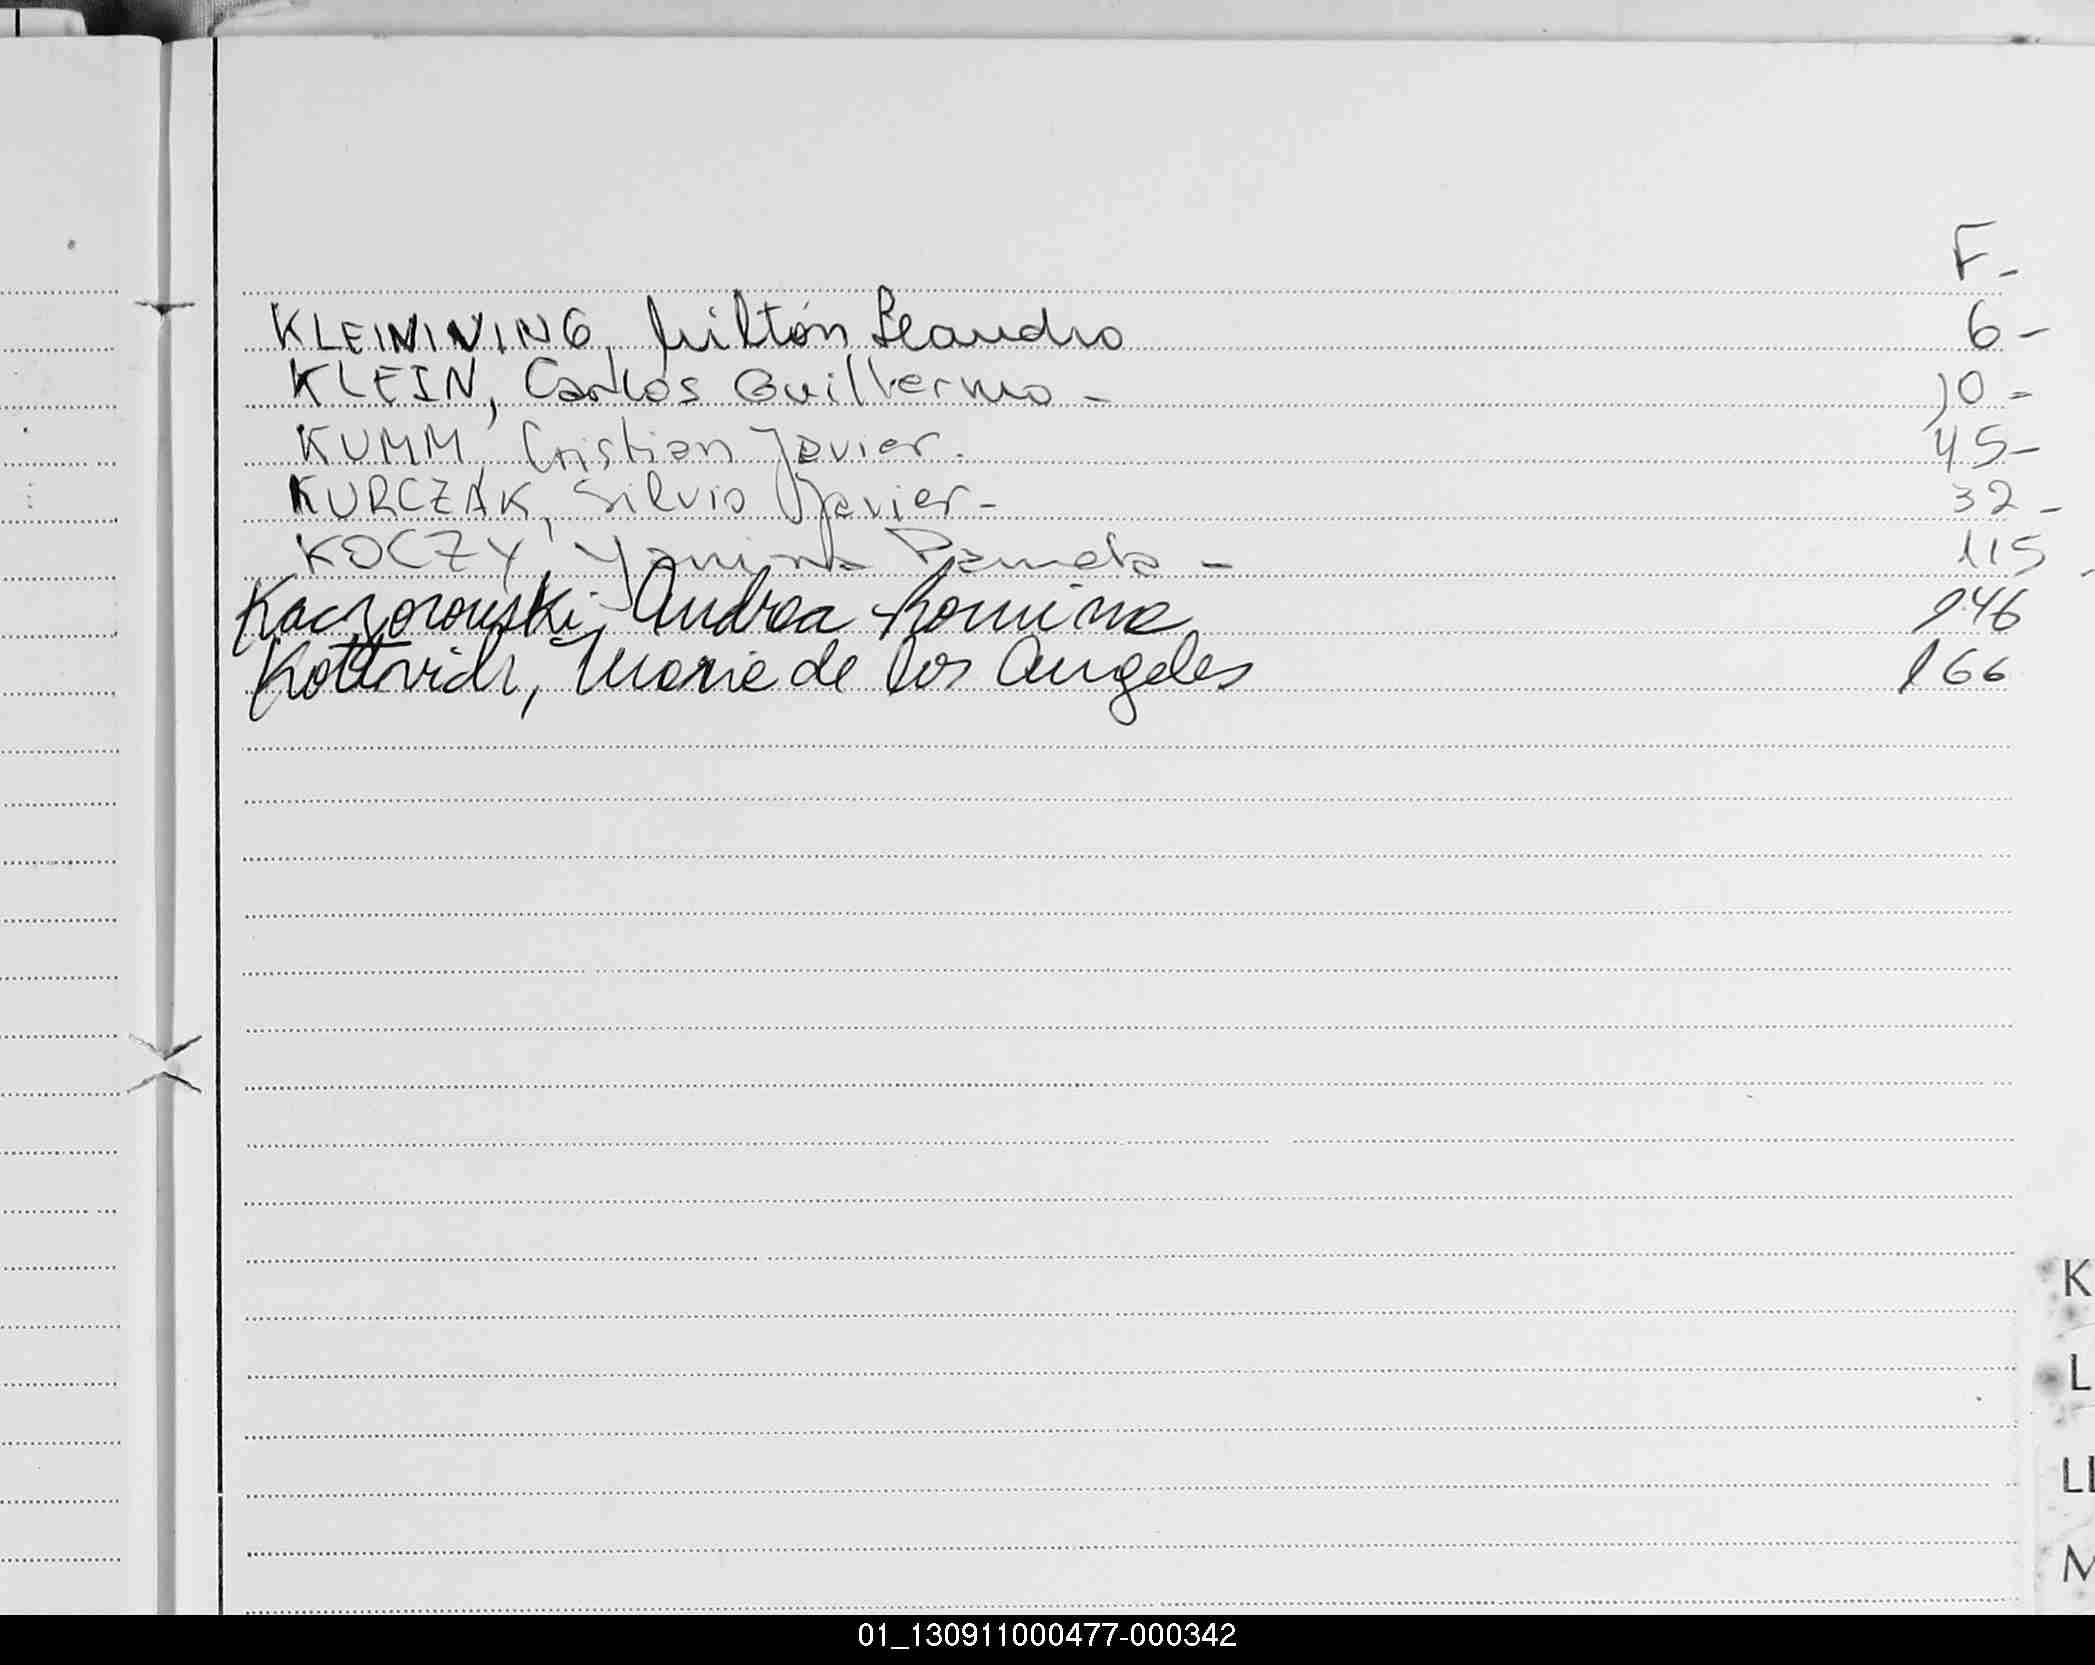 F-
KLEINNING, Miltón Leandro 6-
KLEIN, Carlos Guillermo - 10-
KUMM, Cristian Javier. 45-
KURCZAK, Silvio Javier- 32-
KOCZY, Yanina Pamela - 115-
Kaczorowski, Andrea Romina 146
Maria de los Angeles 166
K
L
LL
M
01_130911000477-000342